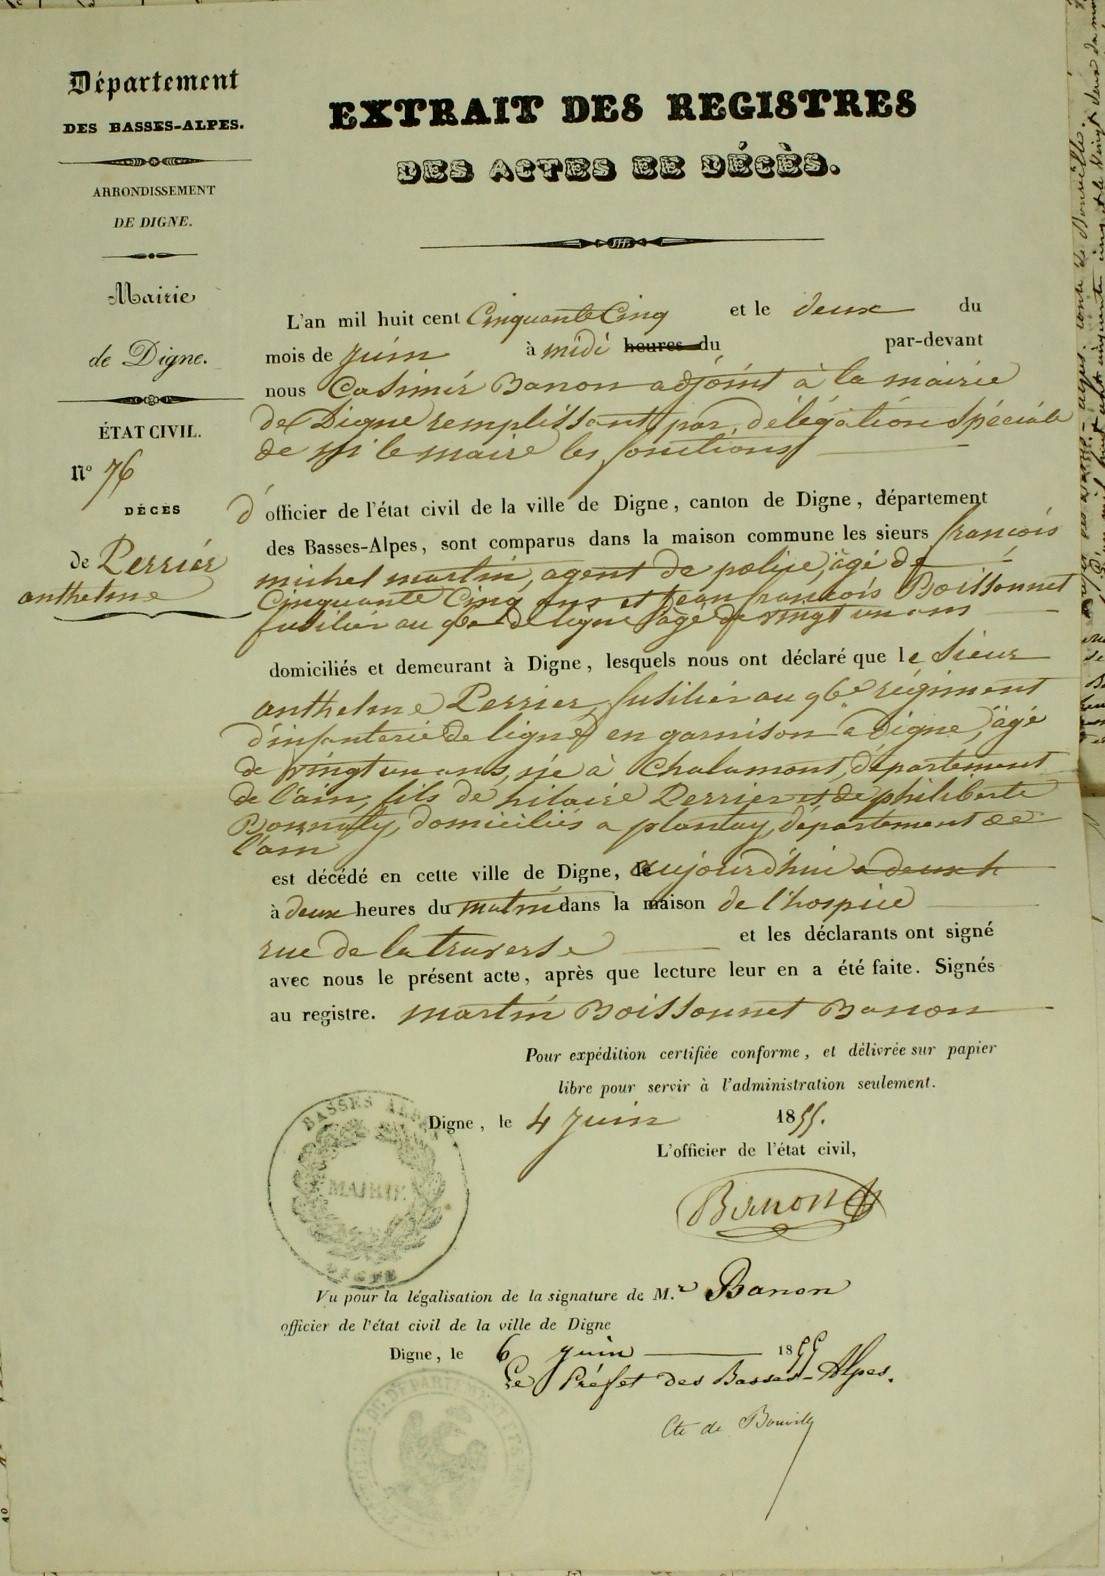 Département
DES BASSES-ALPES.
ARRONDISSEMENT
DE DIGNE.
Mairie
de Digne.
ÉTAT CIVIL.
N° 76
DÉCÈS
de Perrier
anthelme
EXTRAIT DES REGISTRES
DES ACTES EE DÉCÈS.
L'an mil huit cent Cinquante Cinq et le deux du
mois de juin à midi heures du par-devant
nous Casimir Banon adjoint à la mairie
de Digne remplissant par délégation spéciale
de mr le maire les fonctions
d'officier de l'état civil de la ville de Digne, canton de Digne, département
des Basses-Alpes, sont comparus dans la maison commune les sieurs francois
michel martin, agent de police, âgé de
Cinquante Cinq ans et jean francois Boissonnet
fusilier au 96e de ligne âgé de vingt un ans
domiciliés et demeurant à Digne, lesquels nous ont déclaré que le sieur
anthelme Perrier fusilier au 96e régiment
d'infanterie de ligne en garnison à Digne, âgé
de vingt un ans, né à Chalamont, département
de l'ain, fils de hilaire Perrier et de philiberte
domiciliés a plantay, département de
l'ain
est décédé en cette ville de Digne, aujourd'hui a deux h
à deux heures du matin dans la maison de l'hospice
rue de la traverse et les déclarants ont signé
avec nous le présent acte, après que lecture leur en a été faite. Signés
au registre. martin Boissonnet Banon
Pour expédition certifiée conforme, et délivrée sur papier
libre pour servir à l'administration seulement.
Digne, le 4 juin 1855.
L'officier de l'état civil,
Banon
BASSES ALPES
MAIRIE
DIGNE
Vu pour la légalisation de la signature de M.r Banon
officier de l'état civil de la ville de Digne
Digne, le 6 juin 1855
Le Préfet des Basses-Alpes.
Cte de Bouville